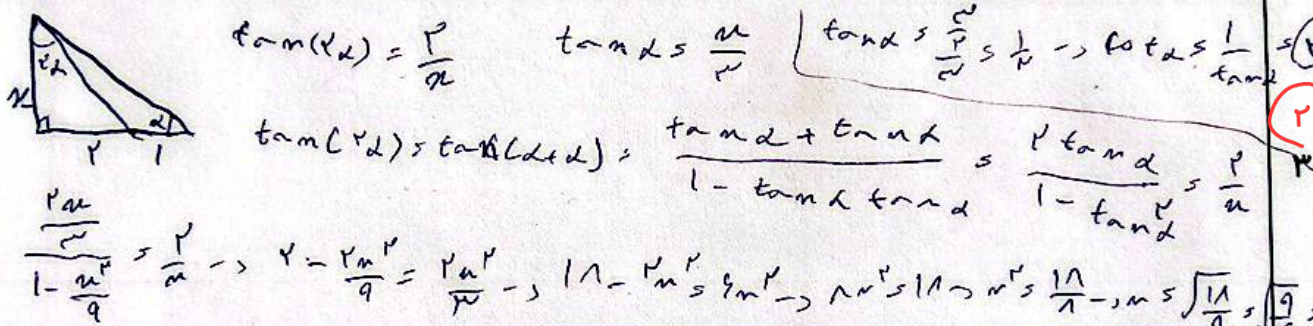 tan(۲α) = ۲/x    tan α = x/۳    tan α = (۳/۲)/۳ = ۱/۲ → cot α = 1/tan α = ۲
x ۲α α ۲ ۱
tan(۲α) = tan(α+α) = (tan α + tan α)/(1 - tan α tan α) = ۲ tan α/(1 - tan۲ α) = ۲/x
(۲x/۳)/(1 - x۲/۹) = ۲/x → ۲ - ۲x۲/۹ = ۲x۲/۳ → ۱۸ - ۲x۲ = ۶x۲ → ۸x۲ = ۱۸ → x۲ = ۱۸/۸ → x = √(۱۸/۸) = √(۹